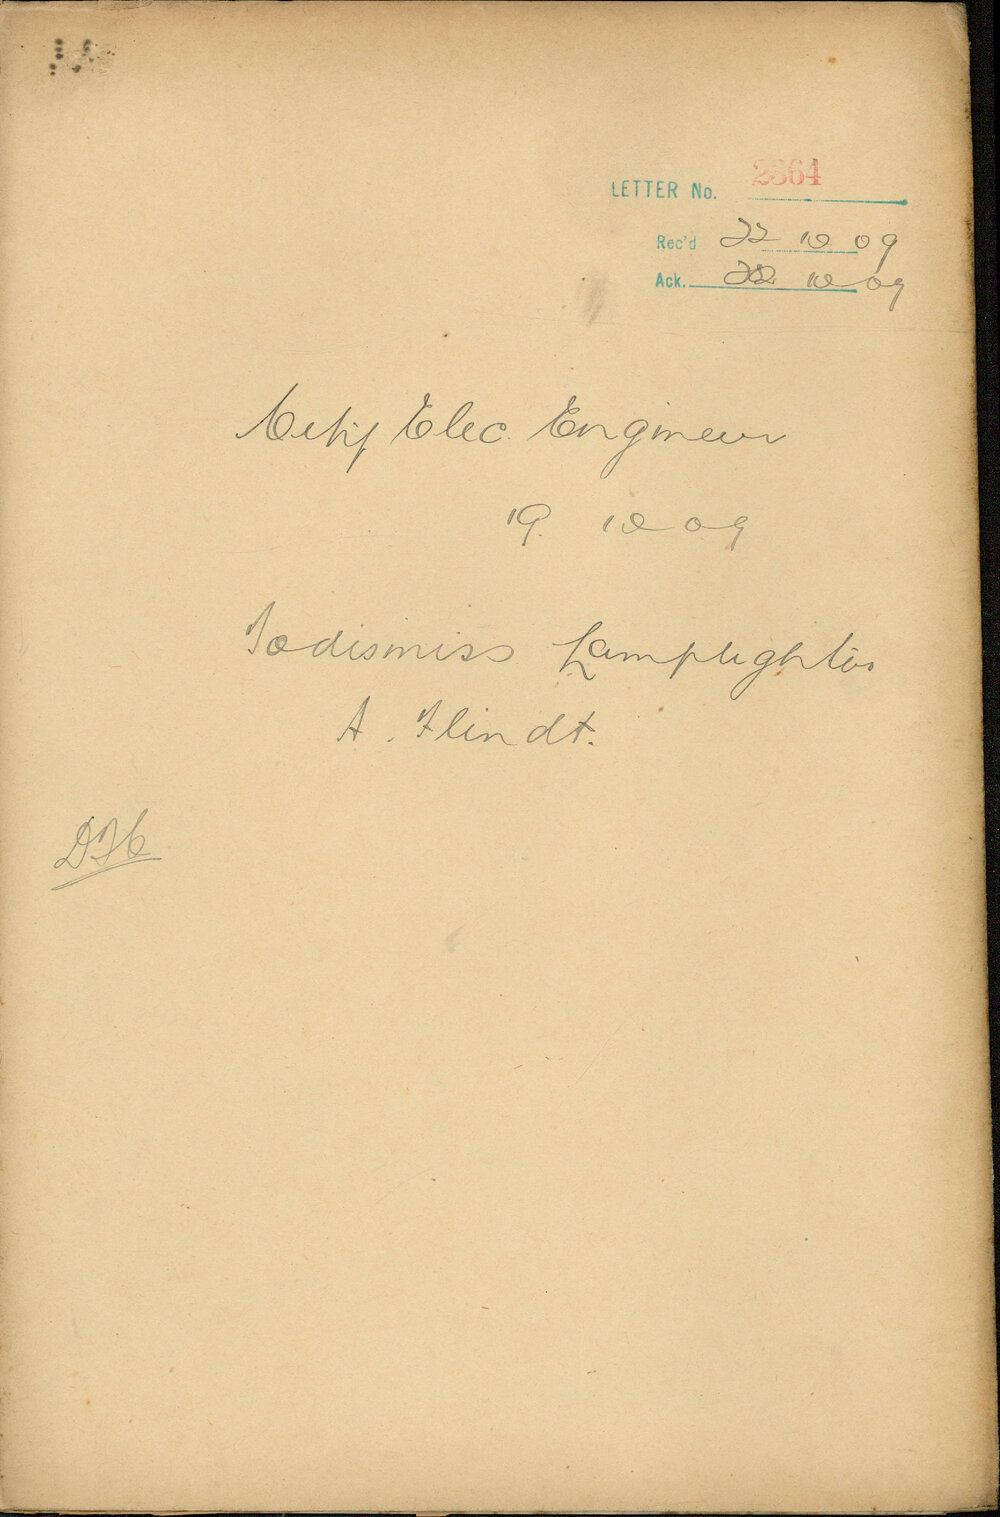 LETTER No. 2364
Rec'd 22 10 09
Ack. 22 10 09
City Elec. Engineer
19. 10 09
To dismiss Lamplighter
A. Flindt.